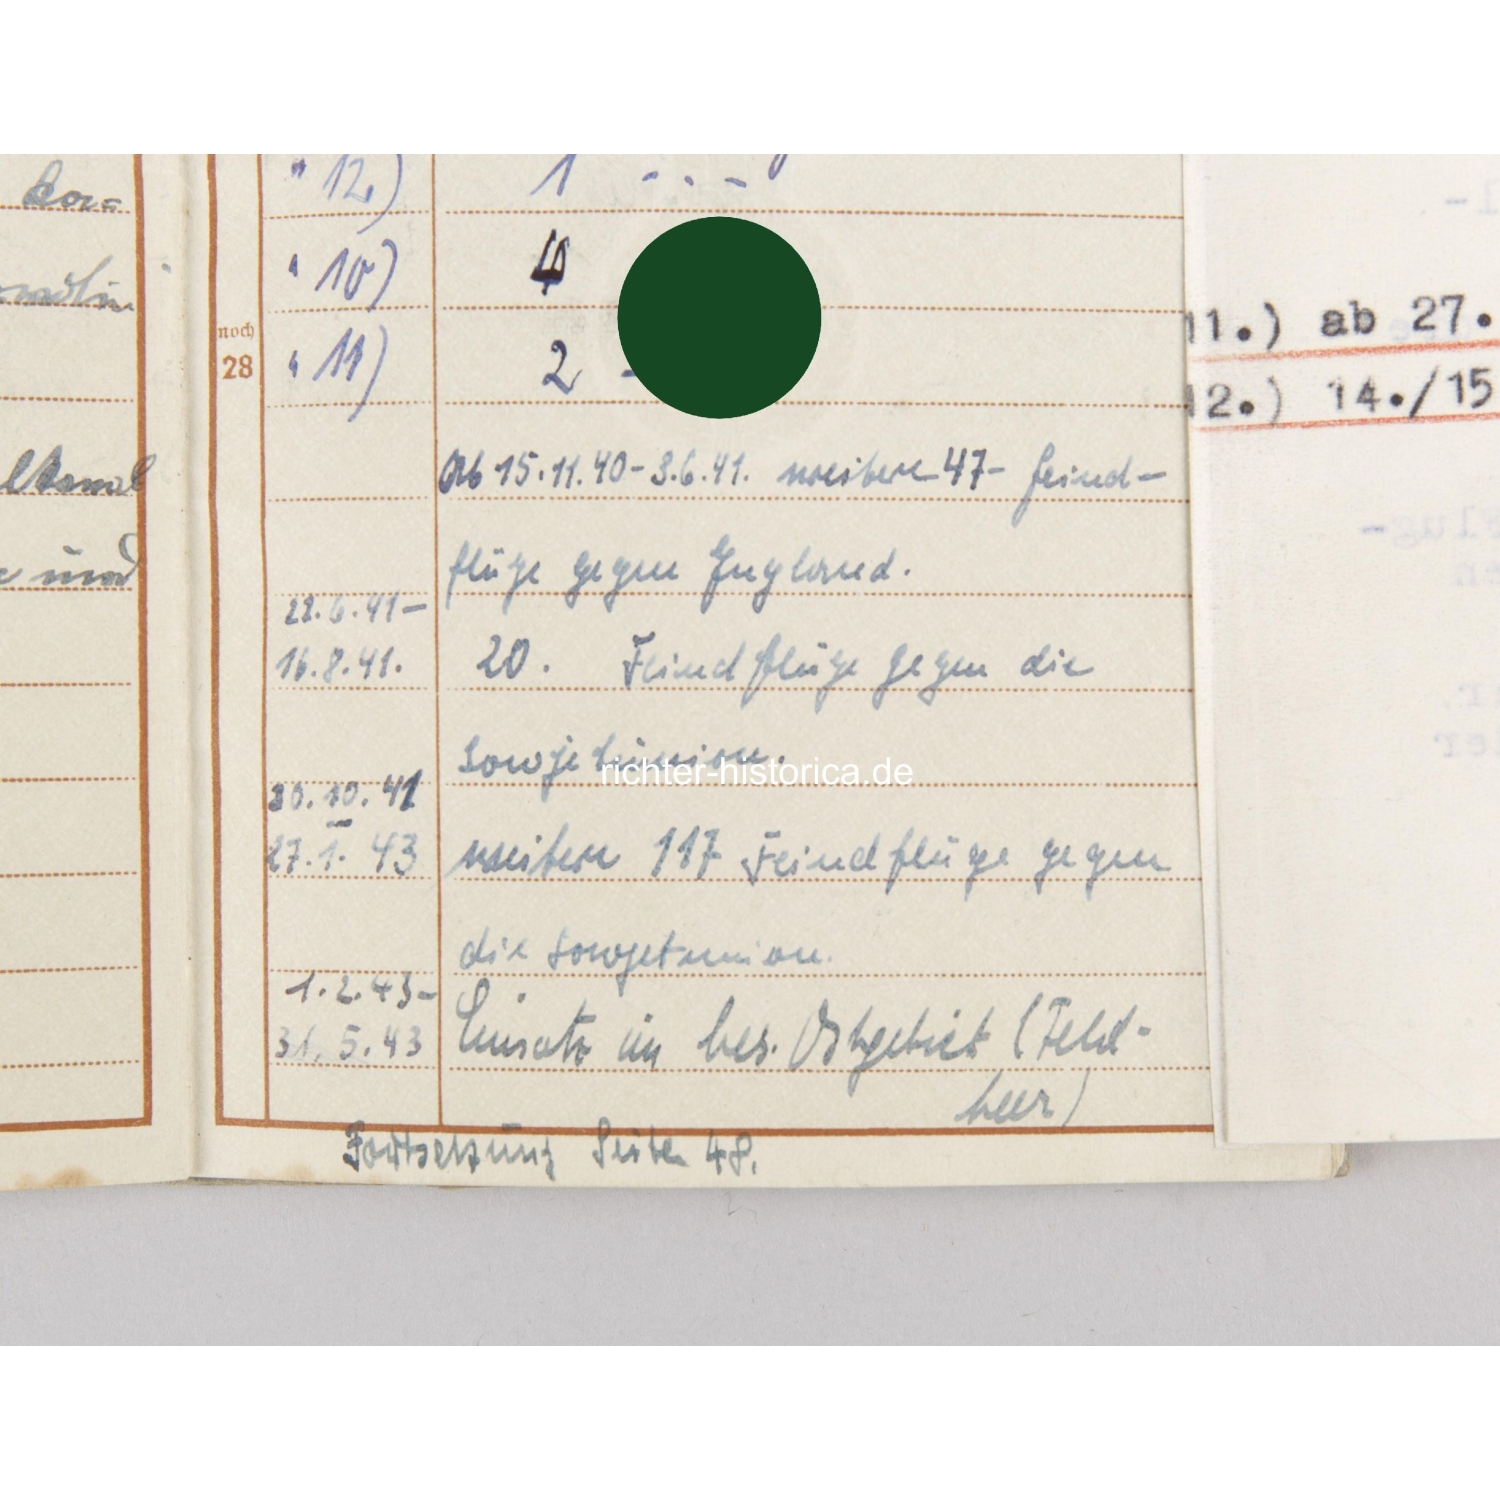 kor=
lkanal
und
noch
28
" 12.) 1 - . -
" 10) 4
" 11) 2 -
Ab 15.11.40-3.6.41. weitere 47- Feind-
flüge gegen England.
22.6.41-
16.8.41. 20. Feindflüge gegen die
Sowjetunion.
30.10.41
-
27.1.43 weitere 117 Feindflüge gegen
die Sowjetunion.
1.2.43-
31.5.43 Einsatz im bes. Ostgebiet (Feld-
heer)
Fortsetzung Seite 48.
11.) ab 27.
12.) 14./15
richter-historica.de